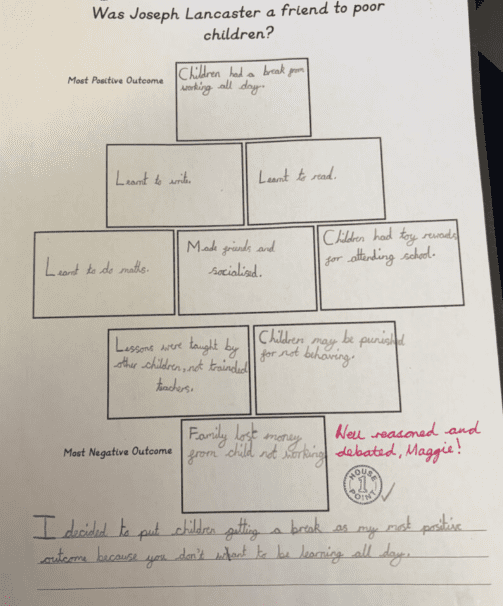 Was Joseph Lancaster a friend to poor
children?
Most Positive Outcome
Children had a break from
working all day.
Learnt to write.
Learnt to read.
Learnt to do maths.
Made friends and
socialised.
Children had toy rewards
for attending school.
Lessons were taught by
other children, not trainded
teachers.
Children may be punished
for not behaving.
Most Negative Outcome
Family lost money
from child not working
Well reasoned and
debated, Maggie!
HOUSE
1
POINT
I decided to put children getting a break as my most positive
outcome because you don't want to be learning all day.